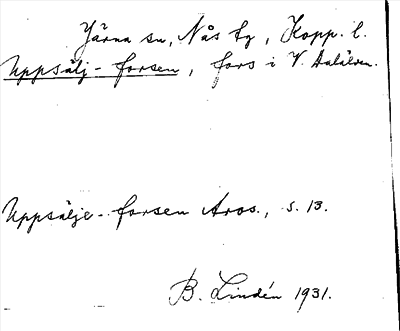 Järna sn, Nås tg, Kopp. l.
Uppsälj-forsen, fors i V. Dalälven.
Uppsälje-forsen Aros., s. 13.
B. Lindén 1931.